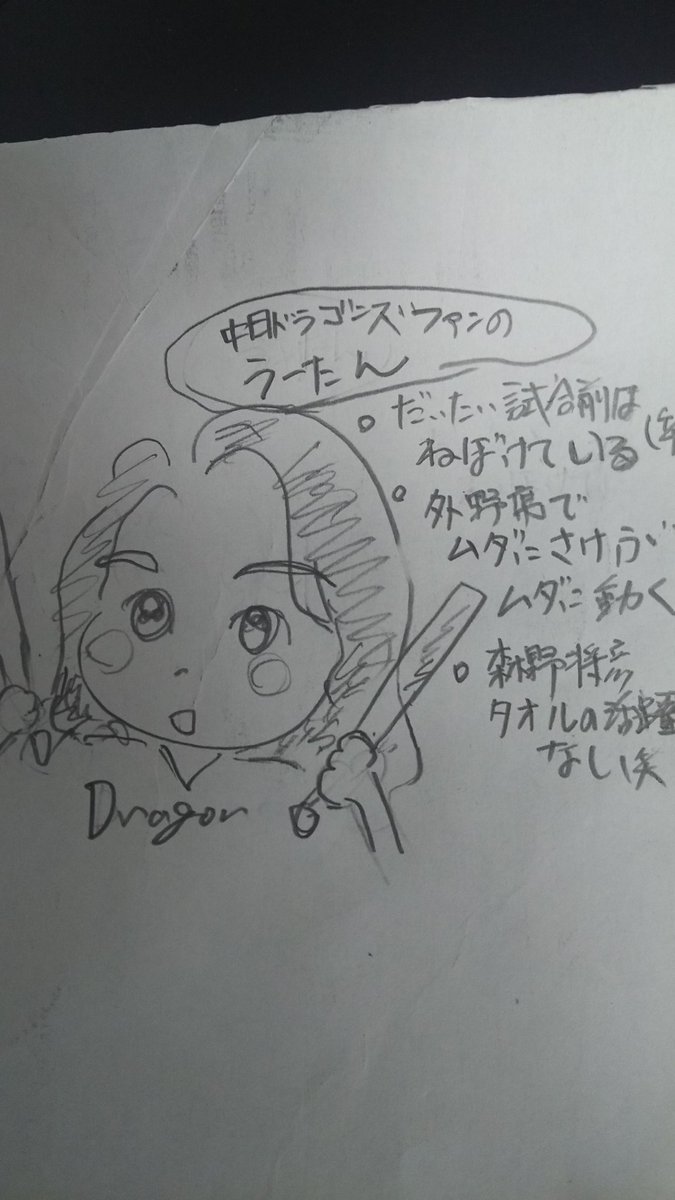 中日ドラゴンズファンの
うーたん
だいたい試合前は
ねぼけている
外野席で
ムダにさけぶ
ムダに動く
森野将彦
タオルの活躍
なし(笑
Dragon